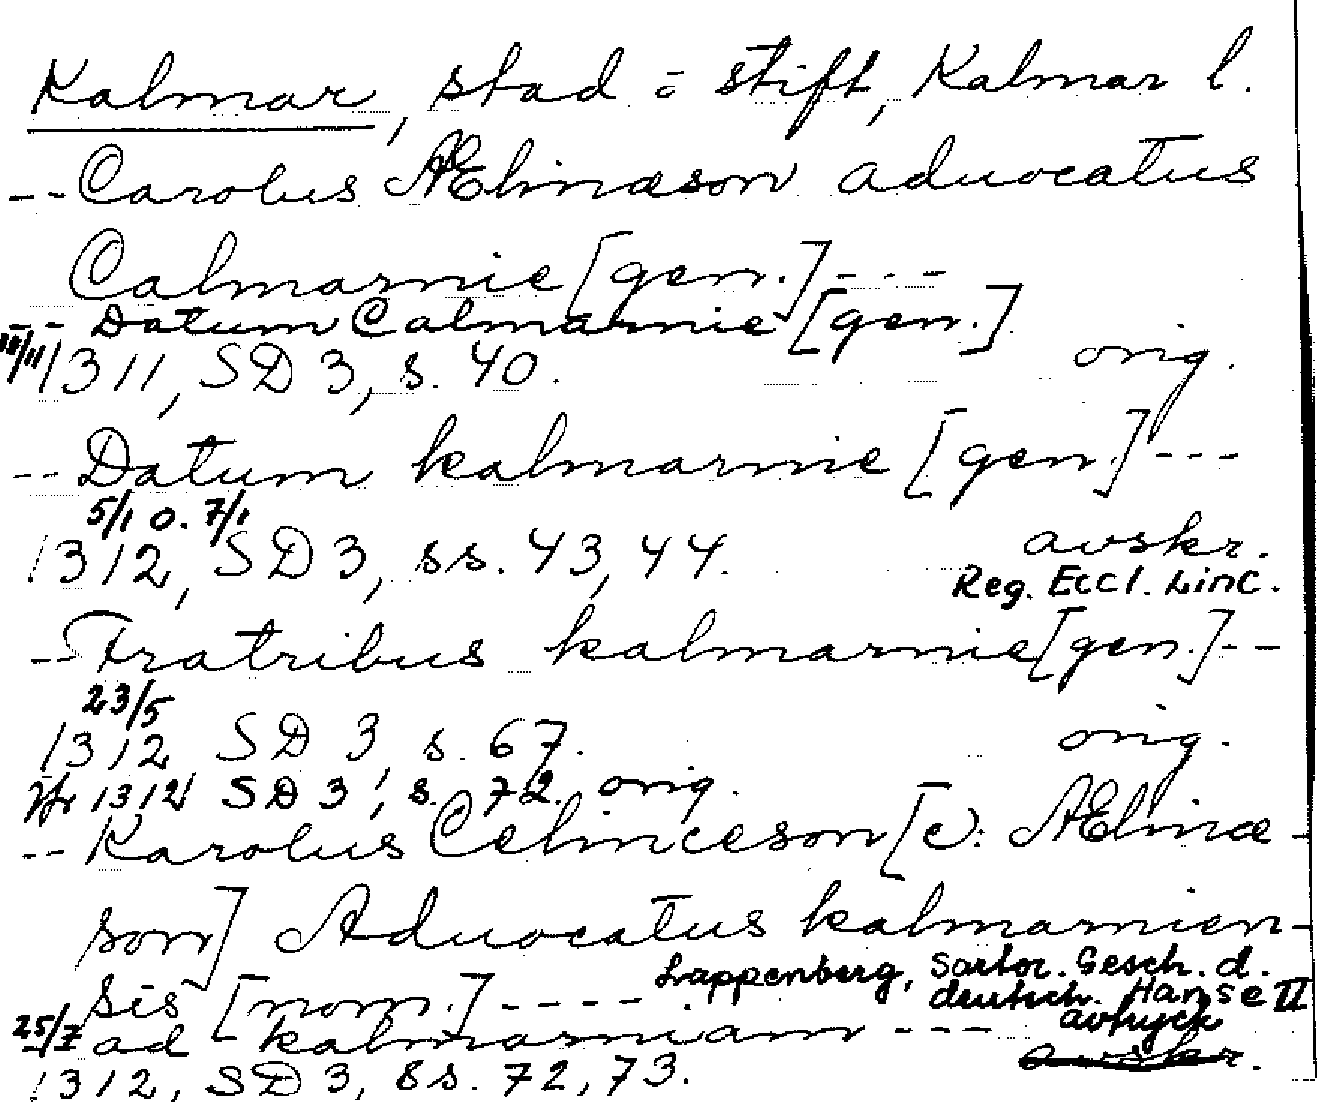 Kalmar, stad o stift, Kalmar l.
-- Carolus Ælinæson aduocatus
Calmarnie [gen.] ----
-- Datum Calmarnie [gen.]
1311, SD 3, s. 40. orig.
-- Datum kalmarnie [gen.] ---
5/1 o. 7/1
1312, SD 3, ss. 43, 44. avskr.
Reg. Eccl. Linc.
-- Fratribus kalmarnie [gen.] --
23/5
1312 SD 3, s. 67. orig.
Jfr 1312 SD 3, s. 72. orig.
-- Karolus Celinceson [c: Ælinæ-
son] Aduocatus kalmarnien-
Lappenberg, Sartor. Gesch. d.
sis [nom.] ----- deutsch. Hanse II
25/7 -- ad kalmarniam --- avtryck
1312, SD 3, ss. 72, 73. avskr.